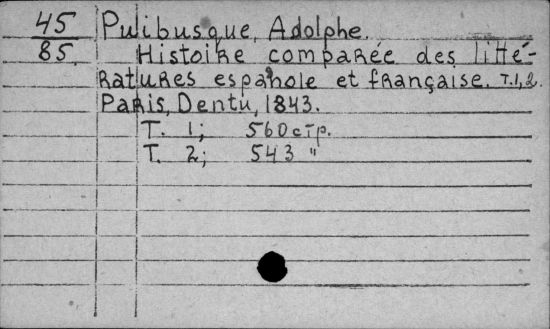 45 Pulibusque, Adolphe.
85. Histoire comparée des litté-
ratures espanole et française. T.1,2.
Paris, Dentu, 1843.
T. 1; 560 стр.
T. 2; 543 "